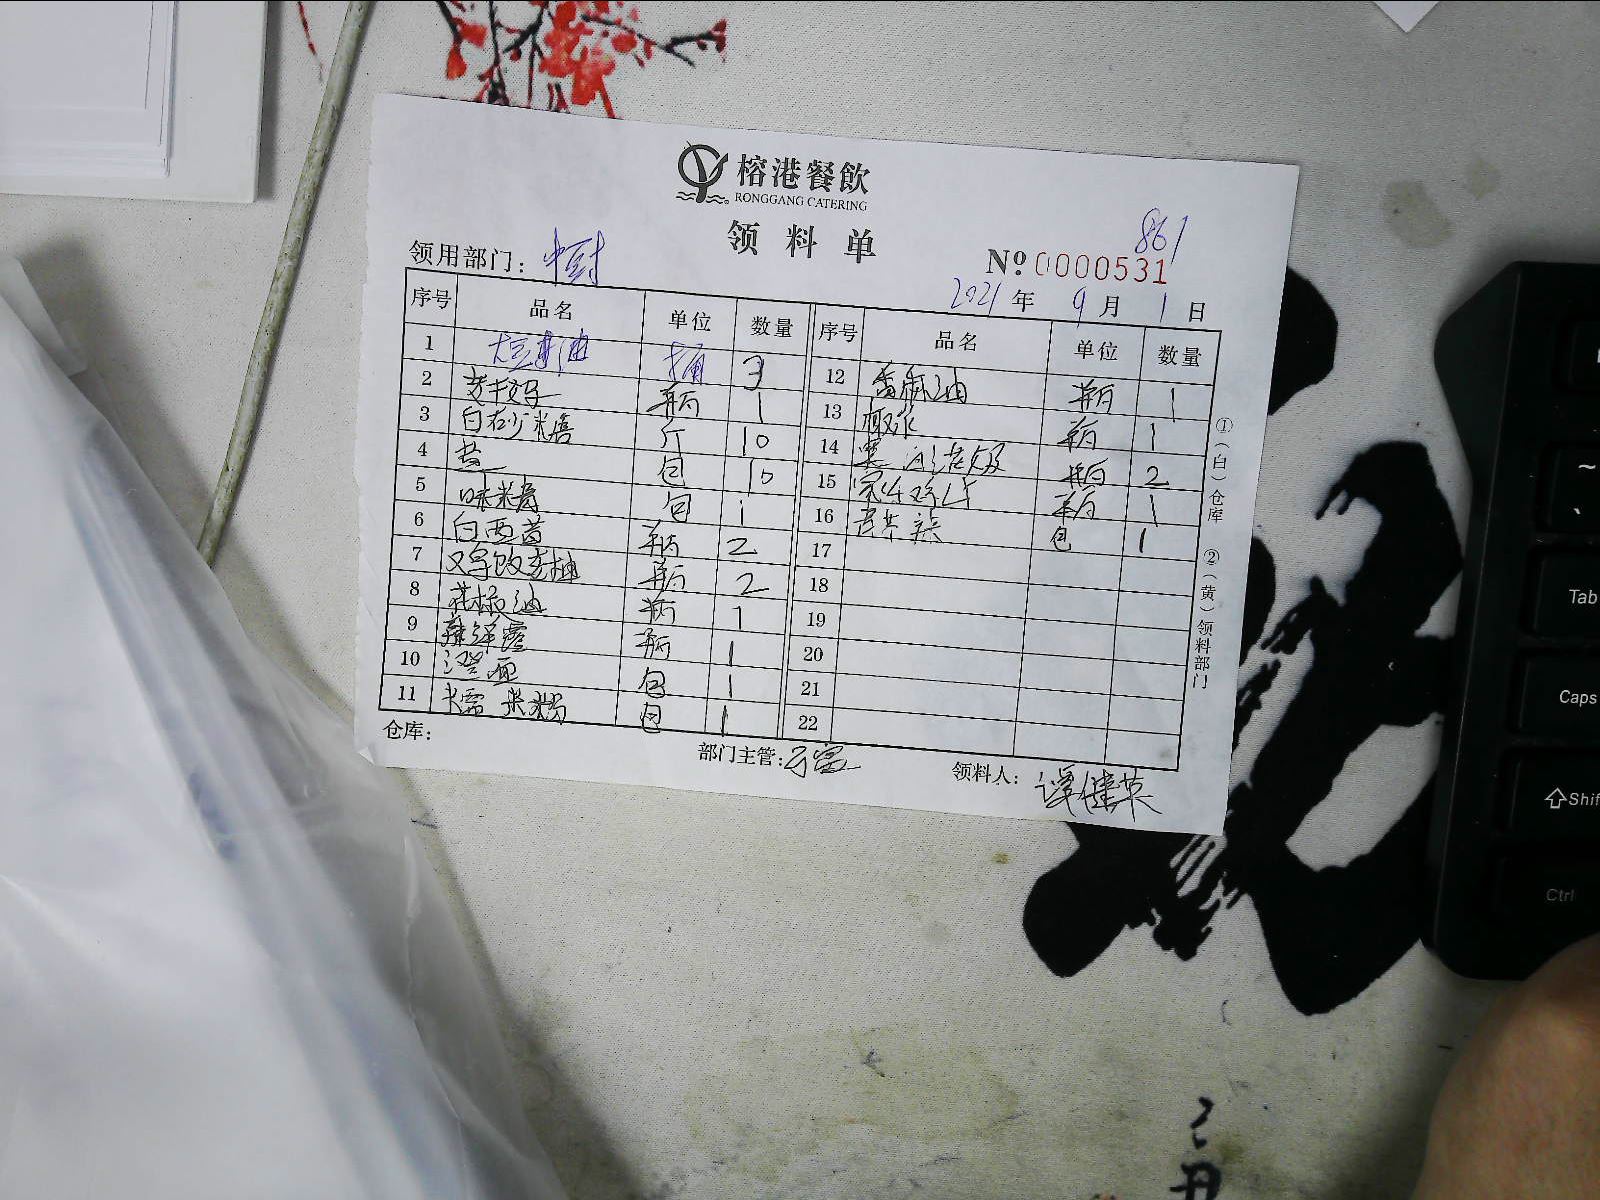 榕港餐飲
RONGGANG CATERING
领料单
861
领用部门：中厨
№ 0000531
2021年9月1日
序号 品名 单位 数量
1 大豆油 桶 3
2 瓶 1
3 白砂糖 斤 10
4 盐 包 10
5 味精 包 1
6 白西 瓶 2
7 瓶 2
8 花椒油 瓶 1
9 辣鲜露 瓶 1
10 澄面 包 1
11 糯米粉 包 1
序号 品名 单位 数量
12 香麻油 瓶 1
13 瓶 1
14 瓶 2
15 瓶 1
16 包 1
17
18
19
20
21
22
①（白）仓库 ②（黄）领料部门
仓库：
部门主管：
领料人：谭健英
~
Tab
Caps
Shif
Ctrl